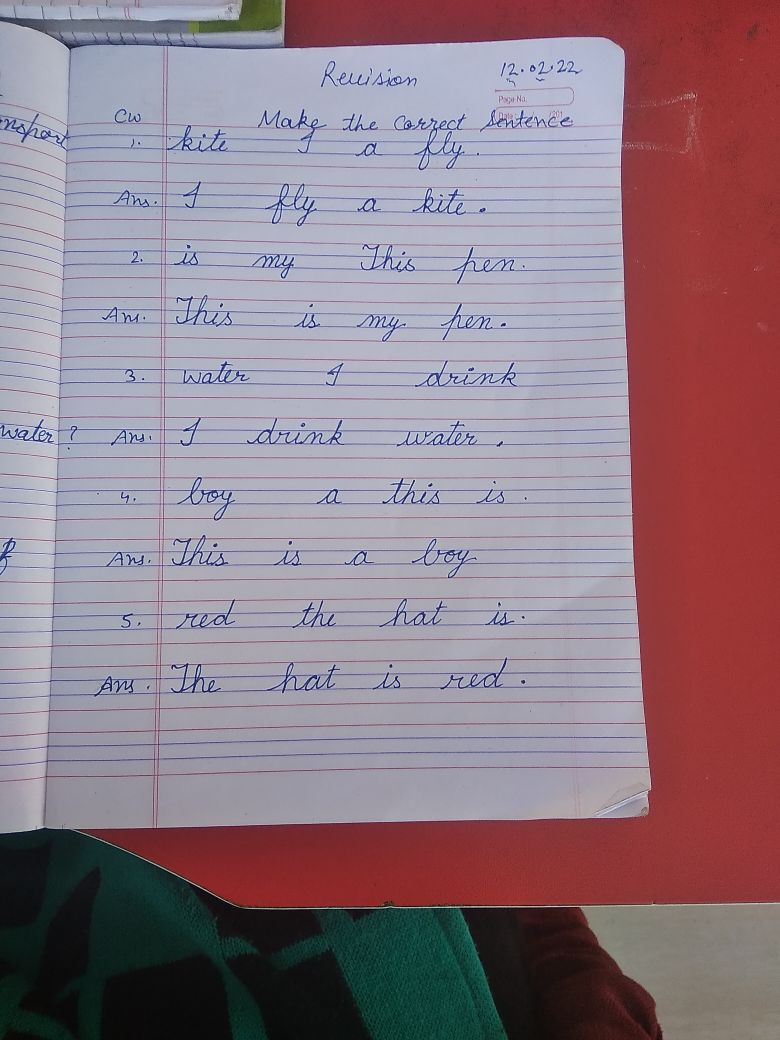 Revision
12.02.22
Page No.
CW
Make the correct Sentence
1. kite I a fly.
Ans. I fly a kite.
2. is my This pen.
Ans. This is my pen.
3. water I drink
water ?
Ans. I drink water.
4. boy a this is.
Ans. This is a boy
5. red the hat is.
Ans. The hat is red.